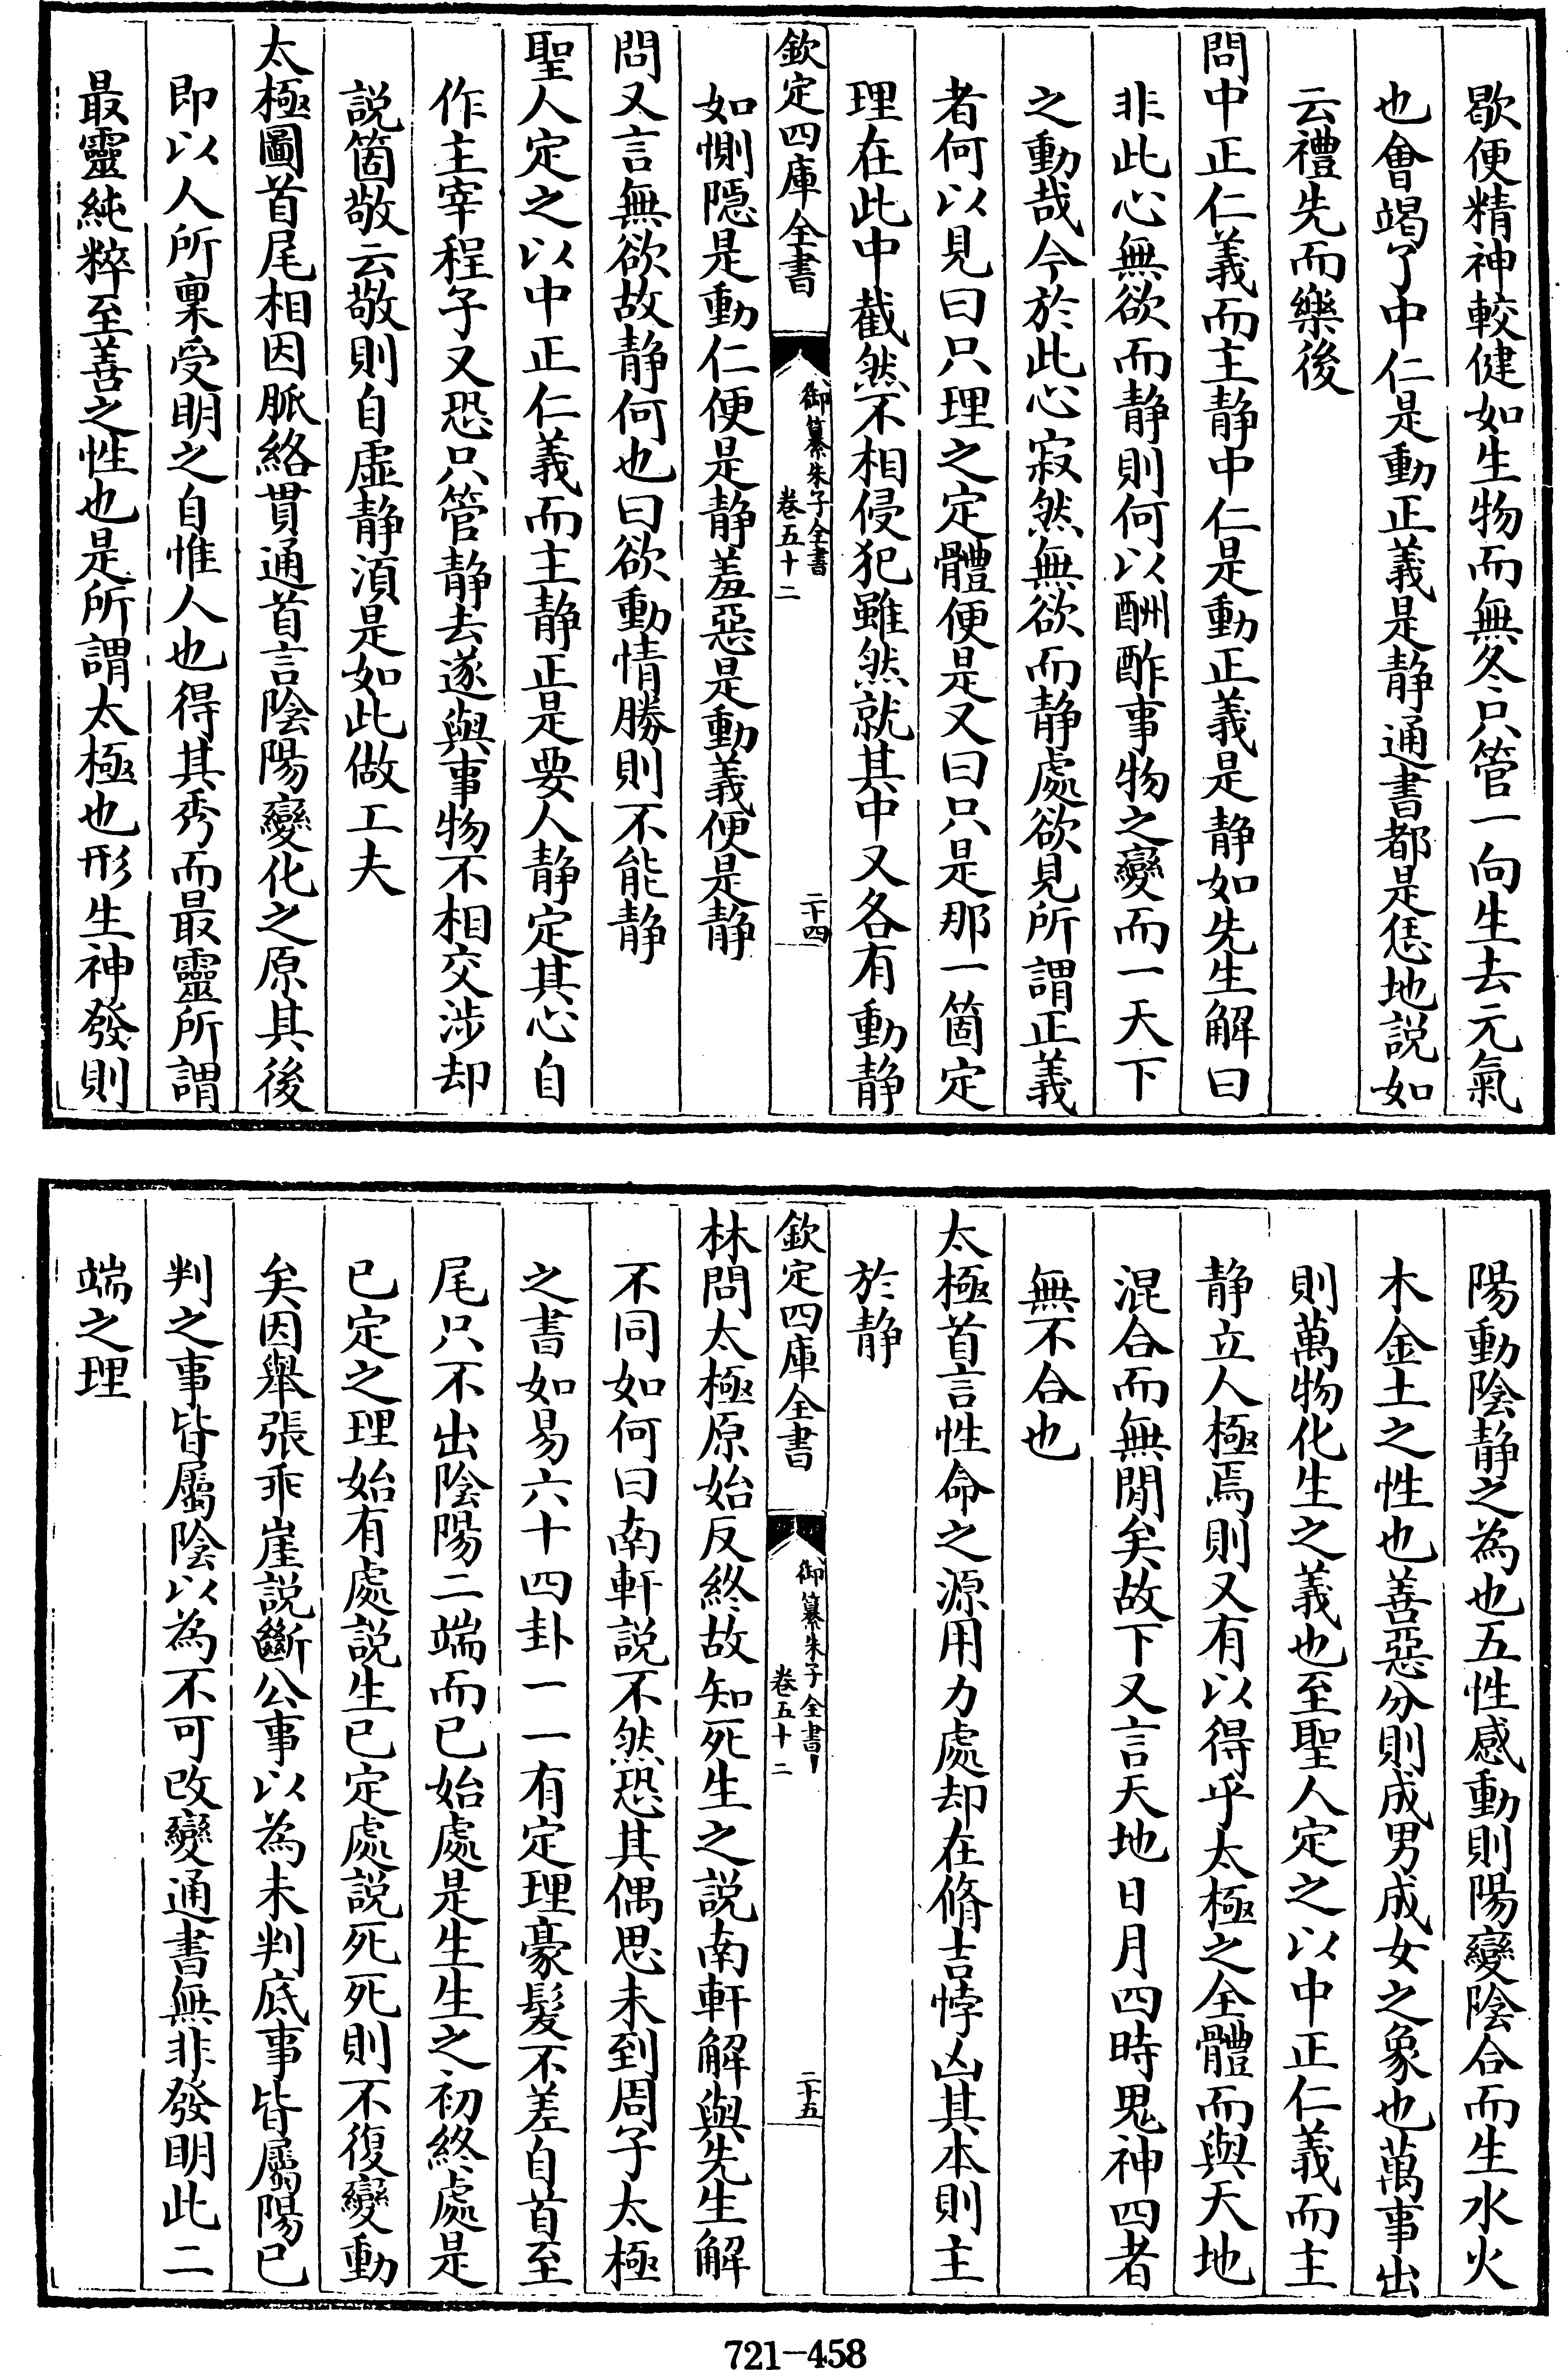 歇便精神較健如生物而無冬只管一向生去元氣
也會竭了中仁是動正義是静通書都是恁地説如
云禮先而樂後
問中正仁義而主静中仁是動正義是静如先生解曰
非此心無欲而静則何以酬酢事物之變而一天下
之動哉今於此心寂然無欲而静處欲見所謂正義
者何以見曰只理之定體便是又曰只是那一箇定
理在此中截然不相侵犯雖然就其中又各有動静
欽定四庫全書
御纂朱子全書
卷五十二
二十四
如惻隠是動仁便是静羞惡是動義便是静
問又言無欲故静何也曰欲動情勝則不能静
聖人定之以中正仁義而主静正是要人静定其心自
作主宰程子又恐只管静去遂與事物不相交涉却
説箇敬云敬則自虚静湏是如此做工夫
太極圖首尾相因脈絡貫通首言陰陽變化之原其後
即以人所稟受明之自惟人也得其秀而最靈所謂
最靈純粹至善之性也是所謂太極也形生神發則
陽動陰静之為也五性感動則陽變陰合而生水火
木金土之性也善惡分則成男成女之象也萬事出
則萬物化生之義也至聖人定之以中正仁義而主
静立人極焉則又有以得乎太極之全體而與天地
混合而無閒矣故下又言天地日月四時鬼神四者
無不合也
太極首言性命之源用力處却在脩吉悖凶其本則主
於静
欽定四庫全書
御纂朱子全書
卷五十二
二十五
林問太極原始反終故知死生之説南軒解與先生解
不同如何曰南軒説不然恐其偶思未到周子太極
之書如易六十四卦一一有定理毫髮不差自首至
尾只不出陰陽二端而已始處是生生之初終處是
已定之理始有處説生已定處説死死則不復變動
矣因舉張乖崖説斷公事以為未判底事皆屬陽已
判之事皆屬陰以為不可改變通書無非發明此二
端之理
721-458